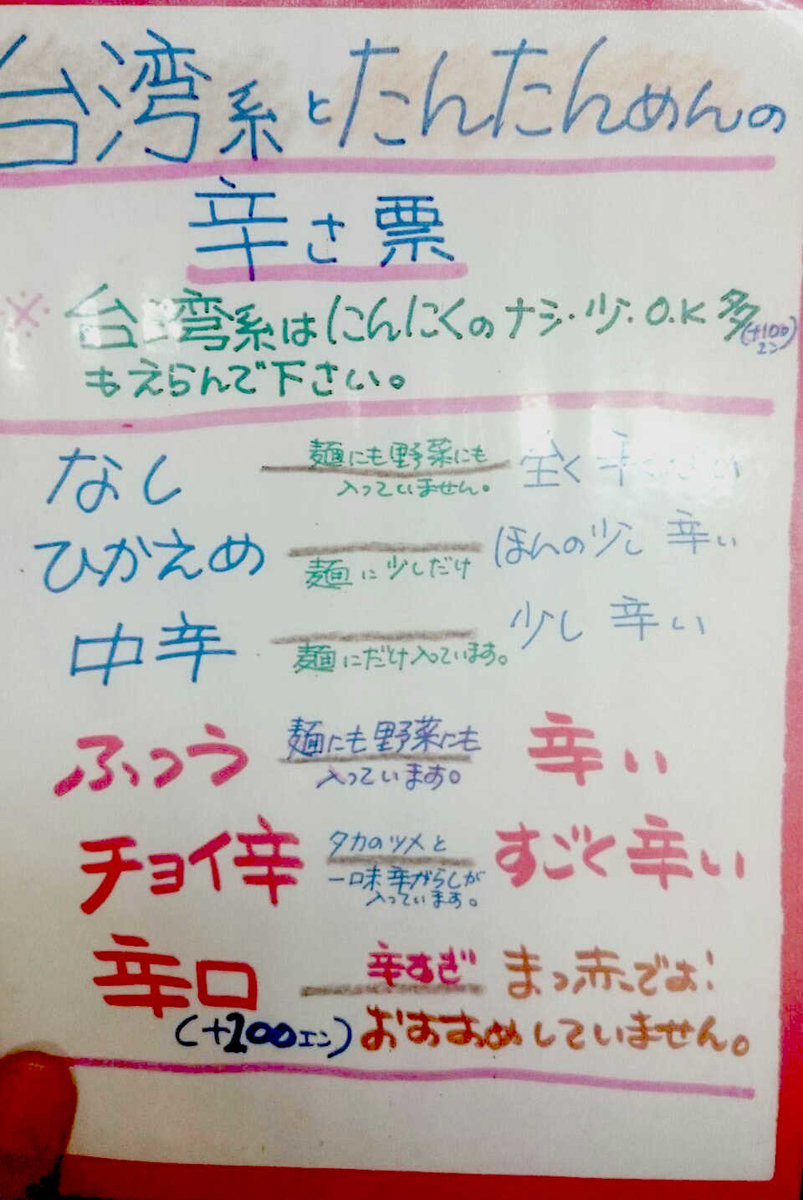 台湾系とたんたんめんの
辛さ票
※台湾系はにんにくのナシ・少・O.K 多(+100エン)
もえらんで下さい。
なし 麺にも野菜にも入っていません。 全く辛くない
ひかえめ 麺に少しだけ ほんの少し辛い
中辛 麺にだけ入っています。 少し辛い
ふつう 麺にも野菜にも入っています。 辛い
チョイ辛 タカのツメと一味辛がらしが入っています。 すごく辛い
辛口 辛すぎ まっ赤です!
(+100エン) おすすめしていません。